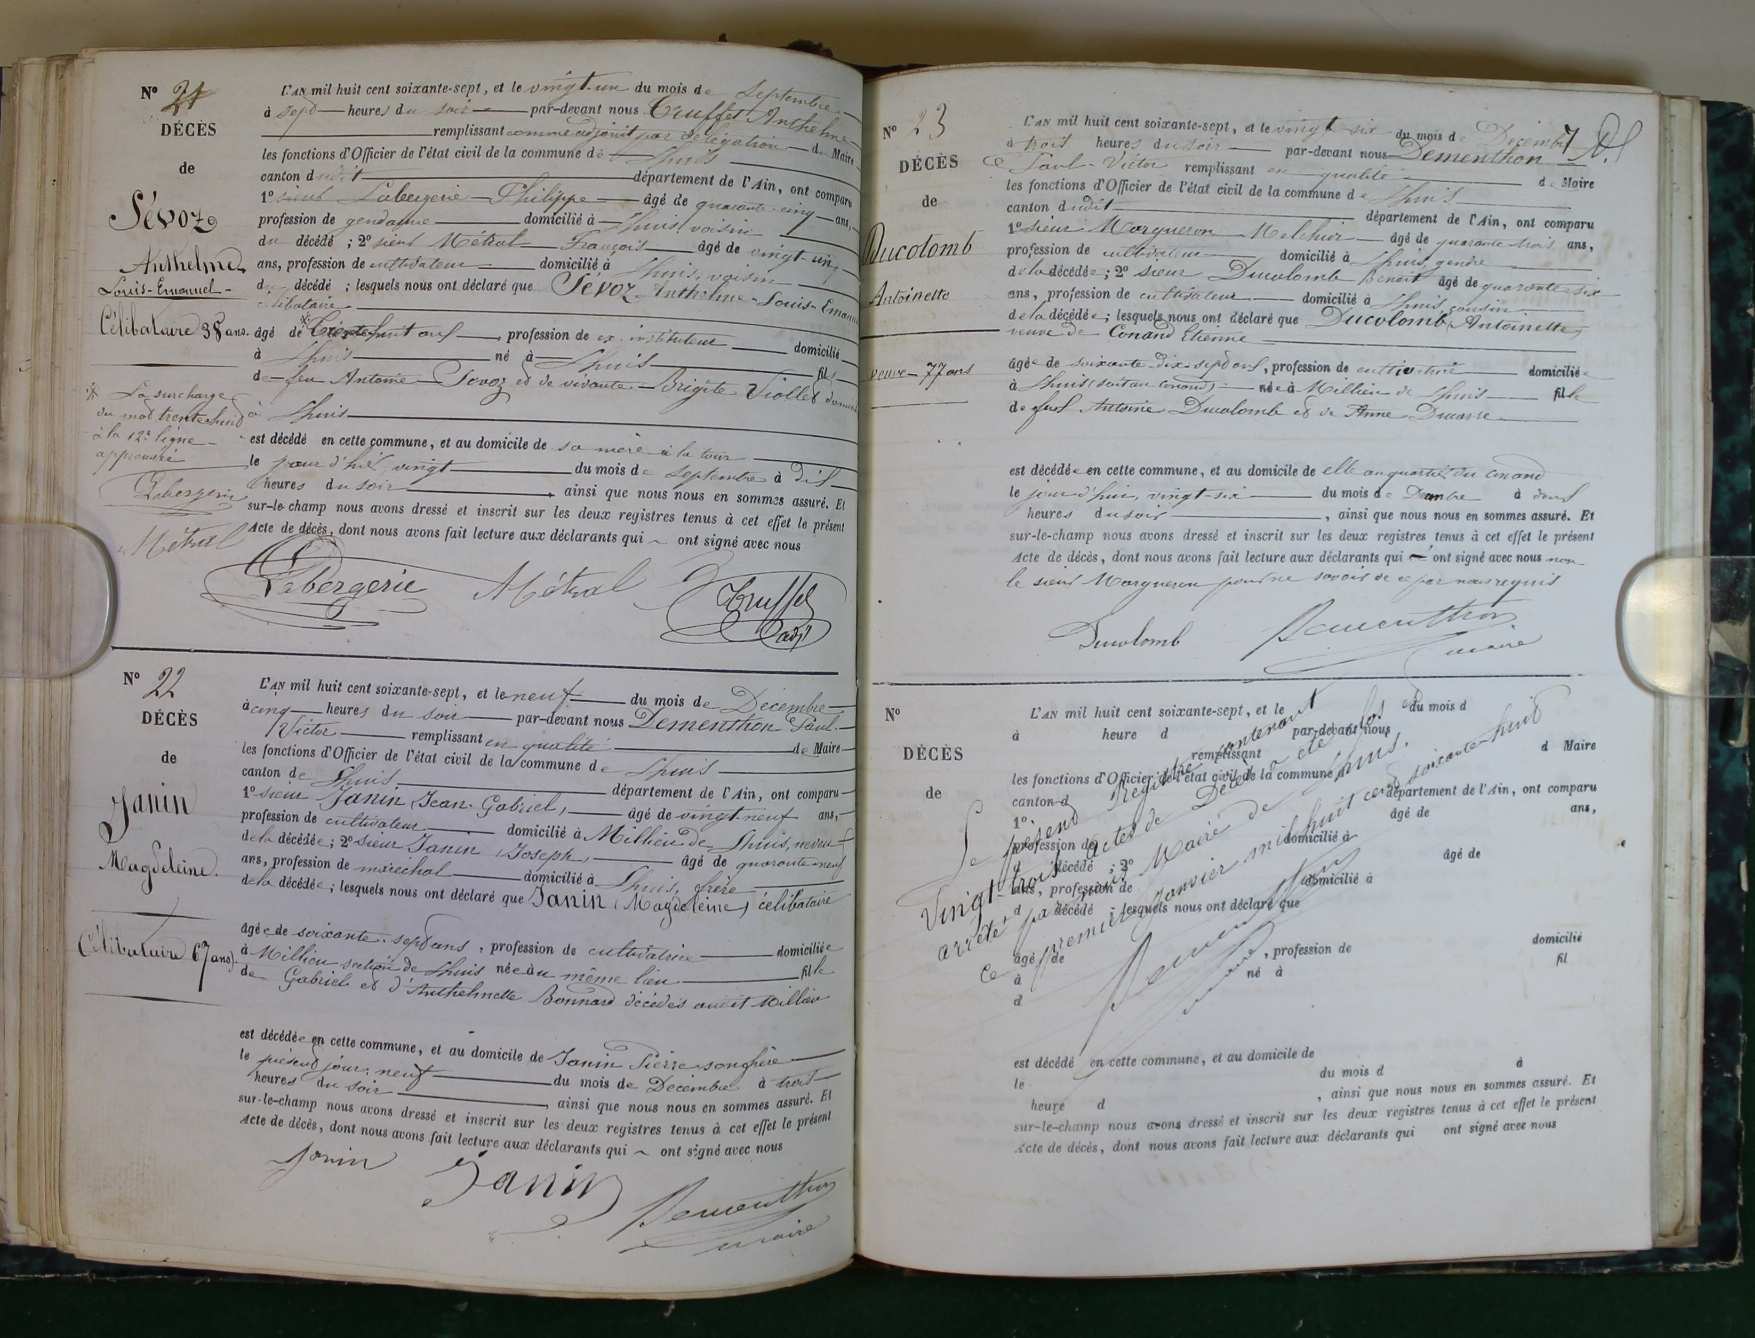 N° 21
DÉCÈS
de
Sévoz
Anthelme
Louis-Emanuel
Célibataire 38 ans.
* La surcharge
du mot trente huit
à la 12e ligne
approuvée
Lebergerie
Métral
L'AN mil huit cent soixante-sept, et le vingt-un du mois de Septembre
à sept heures du soir par-devant nous Truffet Anthelme
remplissant comme adjoint par délégation de Maire
les fonctions d'Officier de l'état civil de la commune de Lhuis
canton dudit département de l'Ain, ont comparu
1° sieur Labergerie Philippe âgé de quarante-cinq ans,
profession de gendarme domicilié à Lhuis voisin
du décédé ; 2° sieur Métral François âgé de vingt-un
ans, profession de cultivateur domicilié à Lhuis, voisin
du décédé ; lesquels nous ont déclaré que Sévoz Anthelme-Louis-Emanuel
célibataire
âgé de * trente huit ans, profession de ex-instituteur domicilié
à Lhuis né à Lhuis fils
de feu Antoine Sevoz et de vivante Brigite Viollet
à Lhuis
est décédé en cette commune, et au domicile de sa mère à la tour
le jour d'hier vingt du mois de Septembre à dix
heures du soir, ainsi que nous nous en sommes assuré. Et
sur-le-champ nous avons dressé et inscrit sur les deux registres tenus à cet effet le présent
Acte de décès, dont nous avons fait lecture aux déclarants qui ont signé avec nous
Lebergerie Métral Truffet
adjt
N° 22
DÉCÈS
de
Janin
Magdeleine.
Célibataire 67 ans.
L'AN mil huit cent soixante-sept, et le neuf du mois de Décembre
à cinq heures du soir par-devant nous Dementhon Paul-
Victor remplissant en qualité de Maire
les fonctions d'Officier de l'état civil de la commune de Lhuis
canton de Lhuis département de l'Ain, ont comparu
1° sieur Janin Jean-Gabriel, âgé de vingt-neuf ans,
profession de cultivateur domicilié à Millieu de Lhuis, neveu
de la décédée ; 2° sieur Janin Joseph, âgé de quarante-neuf
ans, profession de maréchal domicilié à Lhuis, frère
de la décédée ; lesquels nous ont déclaré que Janin (Magdeleine) célibataire
âgée de soixante-sept ans, profession de cultivatrice domiciliée
à Millieu section de Lhuis née au même lieu fille
de Gabriel et d'Anthelmette Bonnard décédés audit Millieu
est décédée en cette commune, et au domicile de Janin Pierre son frère
le présent jour, neuf du mois de Décembre à trois
heures du soir, ainsi que nous nous en sommes assuré. Et
sur-le-champ nous avons dressé et inscrit sur les deux registres tenus à cet effet le présent
Acte de décès, dont nous avons fait lecture aux déclarants qui ont signé avec nous
Janin Janin Dementhon
maire
N° 23
DÉCÈS
de
Ducolomb
Antoinette
veuve - 77 ans
7
L'AN mil huit cent soixante-sept, et le vingt six du mois de Décembre
à trois heures du soir par-devant nous Dementhon
Paul-Victor remplissant en qualité de Maire
les fonctions d'Officier de l'état civil de la commune de Lhuis
canton dudit département de l'Ain, ont comparu
1° sieur Morgueron Melchior âgé de quarante trois ans,
profession de cultivateur domicilié à Lhuis gendre
de la décédée ; 2° sieur Ducolomb Benoit âgé de quarante six
ans, profession de cultivateur domicilié à Lhuis, cousin
de la décédée ; lesquels nous ont déclaré que Ducolomb Antoinette,
veuve de Conand Etienne
âgée de soixante-dix-sept ans, profession de cultivatrice domiciliée
à Lhuis (soit au Conand) née à Millieu de Lhuis fille
de feus Antoine Ducolomb et de Anne Ducarre
est décédée en cette commune, et au domicile de elle au quartier du Conand
le jour d'hui, vingt-six du mois de Décembre à deux
heures du soir, ainsi que nous nous en sommes assuré. Et
sur-le-champ nous avons dressé et inscrit sur les deux registres tenus à cet effet le présent
Acte de décès, dont nous avons fait lecture aux déclarants qui ont signé avec nous non
le sieur Morgueron pour ne savoir de ce par nous requis
Ducolomb Dementhon
maire
N°
DÉCÈS
de
L'AN mil huit cent soixante-sept, et le du mois d
à heure d par-devant nous
remplissant d Maire
les fonctions d'Officier de l'état civil de la commune d
canton d département de l'Ain, ont comparu
1° âgé de ans,
profession de domicilié à
d décédé ; 2° âgé de
ans, profession de domicilié à
d décédé ; lesquels nous ont déclaré que
âgé de , profession de domicilié
à né à fil
d
est décédé en cette commune, et au domicile de
le du mois d à
heure d , ainsi que nous nous en sommes assuré. Et
sur-le-champ nous avons dressé et inscrit sur les deux registres tenus à cet effet le présent
Acte de décès, dont nous avons fait lecture aux déclarants qui ont signé avec nous
Le présent Registre contenant
Vingt-trois actes de Décès a été clos et
arrêté par nous Maire de Lhuis.
Ce premier Janvier mil huit cent soixante huit
Dementhon